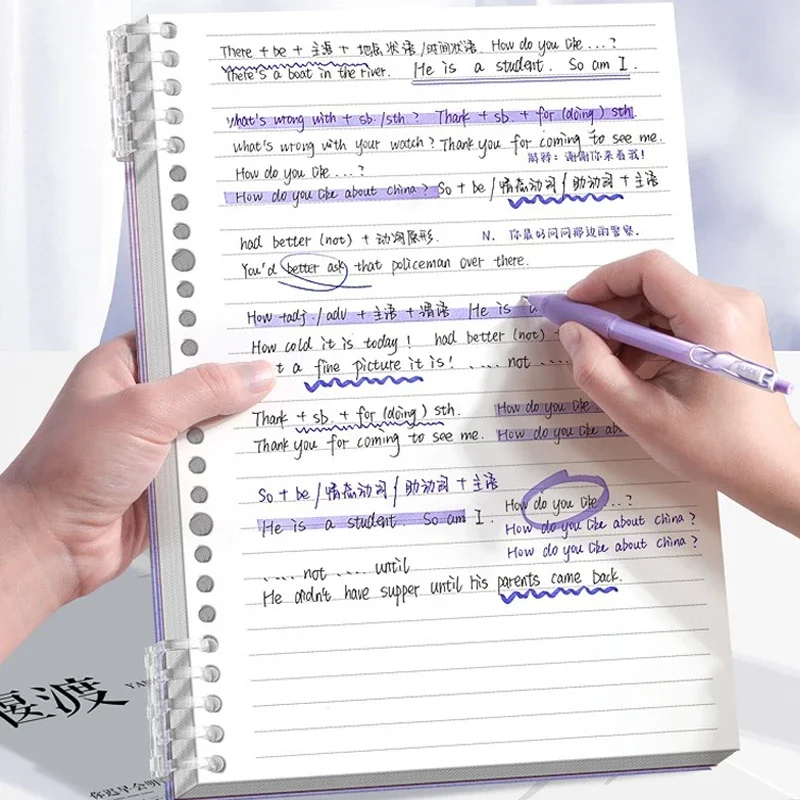 There + be + 主语 + 地点状语 /时间状语. How do you like ...?
There's a boat in the river. He is a student. So am I.
What's wrong with + sb./sth? Thank + sb. + for (doing) sth.
what's wrong with your watch? Thank you for coming to see me.
解释：谢谢你来看我！
How do you like ...?
How do you like about china? So + be / 情态动词 / 助动词 + 主语
had better (not) + 动词原形. N. 你最好问问那边的警察.
You'd better ask that policeman over there.
How +adj./adv + 主语 + 谓语 He is a
How cold it is today! had better (not) +
t a fine picture it is! .... not ....
Thank + sb. + for (doing) sth. How do you like
Thank you for coming to see me. How do you like ab
So + be / 情态动词 / 助动词 + 主语
How do you like ...?
He is a student. So am I.
How do you like about china?
How do you like about china?
.... not .... until
He didn't have supper until his parents came back.
渡
你迟早会明